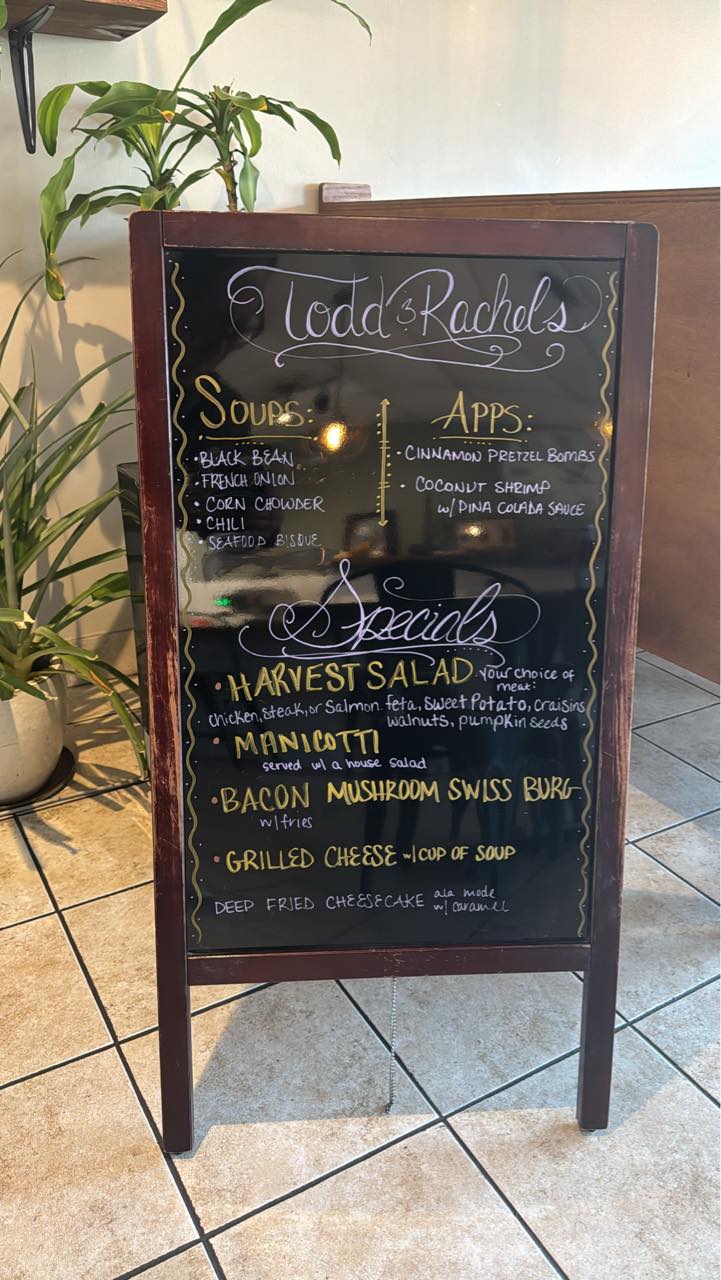 Todd & Rachels
SOUPS:
• BLACK BEAN
• FRENCH ONION
• CORN CHOWDER
• CHILI
• SEAFOOD BISQUE
APPS:
• CINNAMON PRETZEL BOMBS
• COCONUT SHRIMP
w/ PINA COLADA SAUCE
Specials
• HARVEST SALAD - your choice of
meat:
chicken, steak, or Salmon. feta, sweet Potato, craisins
walnuts, pumpkin seeds
• MANICOTTI
served w/ a house salad
• BACON MUSHROOM SWISS BURG
w/ fries
• GRILLED CHEESE w/ CUP OF SOUP
DEEP FRIED CHEESECAKE ala mode
w/ caramel